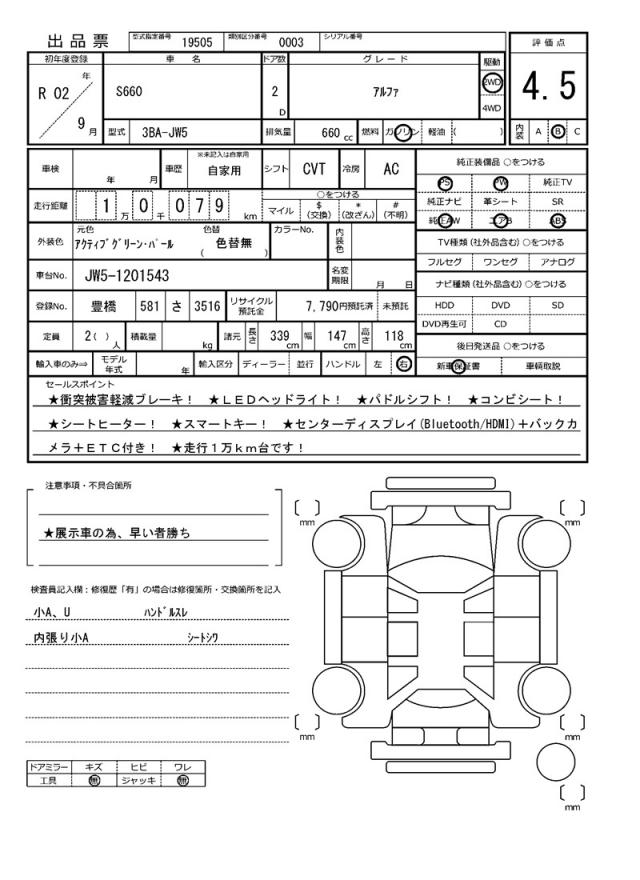 出品票 型式指定番号 19505 類別区分番号 0003 シリアル番号
評価点
4.5
内装 A B C
初年度登録 車名 ドア数 グレード 駆動
R 02 年 9 月
S660 2 D アルファ 2WD 4WD
型式 3BA-JW5 排気量 660 cc 燃料 ガソリン 軽油 ( )
車検 年 月 車歴 ※未記入は自家用 自家用 シフト CVT 冷房 AC
走行距離 1 万 0 千 0 7 9 km
○をつける
マイル $ (交換) * (改ざん) # (不明)
外装色 元色 アクティブグリーン・パール 色替 ( 色替無 ) カラーNo. 内装色
車台No. JW5-1201543 名変期限 月 日
登録No. 豊橋 581 さ 3516 リサイクル預託金 7,790円預託済 未預託
定員 2( )人 積載量 kg 諸元 長さ 339 cm 幅 147 cm 高さ 118 cm
輸入車のみ⇒ モデル年式 年 輸入区分 ディーラー 並行 ハンドル 左 右
純正装備品 ○をつける
PS PW 純正TV
純正ナビ 革シート SR
純正AW エアB ABS
TV種類(社外品含む)○をつける
フルセグ ワンセグ アナログ
ナビ種類(社外品含む)○をつける
HDD DVD SD
DVD再生可 CD
後日発送品 ○をつける
新車保証書 車輌取説
セールスポイント
★衝突被害軽減ブレーキ! ★LEDヘッドライト! ★パドルシフト! ★コンビシート!
★シートヒーター! ★スマートキー! ★センターディスプレイ(Bluetooth/HDMI)+バックカ
メラ+ETC付き! ★走行1万km台です!
注意事項・不具合箇所
★展示車の為、早い者勝ち
検査員記入欄:修復歴「有」の場合は修復箇所・交換箇所を記入
小A、U ハンドルスレ
内張り小A シートシワ
ドアミラー キズ ヒビ ワレ
工具 無 ジャッキ 無
[ ] mm
[ ] mm
[ ] mm
[ ] mm
[ ] mm